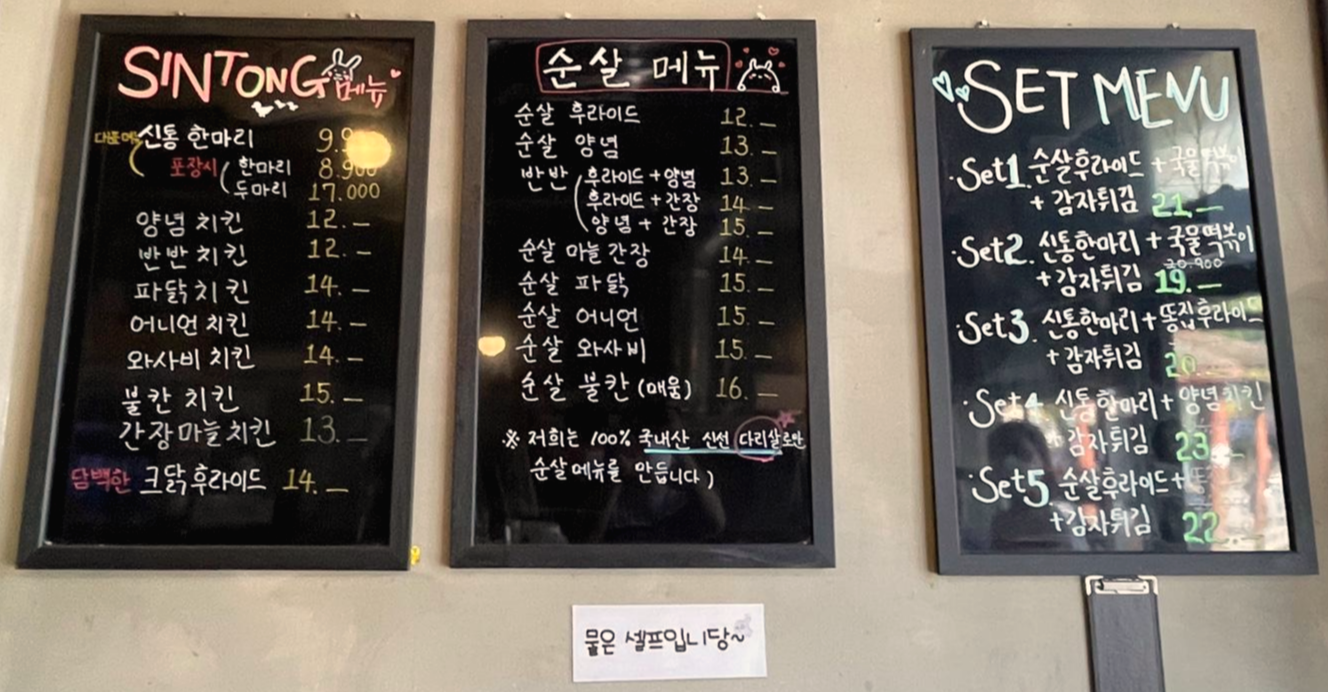 SINTONG 메뉴
신통 한마리 9.9
포장시 한마리 8.900
두마리 17.000
양념 치킨 12.—
반반 치킨 12.—
파닭치킨 14.—
어니언 치킨 14.—
와사비 치킨 14.—
불칸 치킨 15.—
간장마늘치킨 13.—
담백한 크닭후라이드 14.—
순살 메뉴
순살 후라이드 12.—
순살 양념 13.—
반반 후라이드+양념 13.—
후라이드+간장 14—
양념+간장 15.—
순살 마늘간장 14.—
순살 파닭 15.—
순살 어니언 15.—
순살 와사비 15.—
순살 불칸(매움) 16.—
※ 저희는 100% 국내산 신선 다리살로만
순살메뉴를 만듭니다)
SET MENU
·Set1. 순살후라이드+국물떡볶이
+감자튀김 21.—
·Set2. 신통한마리+국물떡볶이
20.900
+감자튀김 19.—
·Set3. 신통한마리+똥집후라이드
+감자튀김 20
·Set4 신통한마리+양념치킨
+감자튀김 23.—
·Set5. 순살후라이드+
+감자튀김 22.—
물은 셀프입니당~